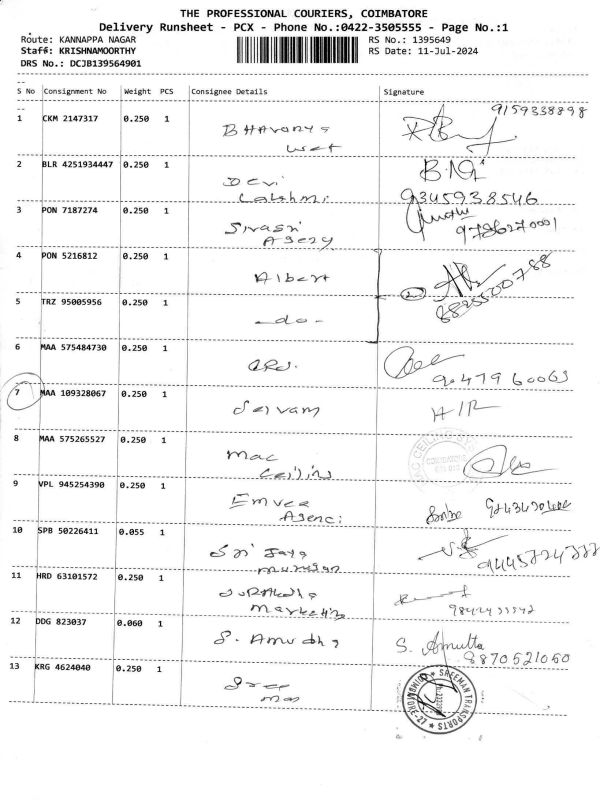 THE PROFESSIONAL COURIERS, COIMBATORE
Delivery Runsheet - PCX - Phone No.:0422-3505555 - Page No.:1
Route: KANNAPPA NAGAR RS No.: 1395649
Staff: KRISHNAMOORTHY RS Date: 11-Jul-2024
DRS No.: DCJB139564901
S No Consignment No Weight PCS Consignee Details Signature
1 CKM 2147317 0.250 1 9159338898
2 BLR 4251934447 0.250 1 Devi
Lakshmi 9345938546
3 PON 7187274 0.250 1 Sivasri
Agezy 9786270001
4 PON 5216812 0.250 1 Albert 8825500788
5 TRZ 95005956 0.250 1 -do-
6 MAA 575484730 0.250 1
7 MAA 109328067 0.250 1 Selvam H/R
8 MAA 575265527 0.250 1 Mac
Ceiling
9 VPL 945254390 0.250 1 Emvee
Agenci
10 SPB 50226411 0.055 1 Sri Jaya
Murugan
11 HRD 63101572 0.250 1
Marketing
12 DDG 823037 0.060 1 S. Amudha S. Amutha
8870521060
13 KRG 4624040 0.250 1 Sree
Mao
SREEMAN TRANSPORTS